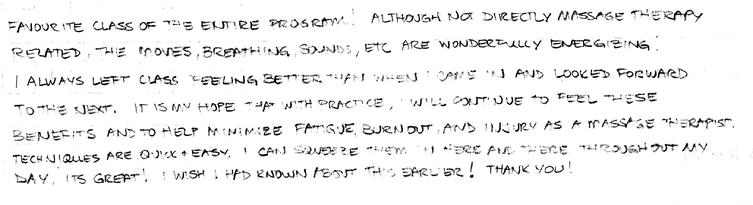 FAVOURITE CLASS OF THE ENTIRE PROGRAM! ALTHOUGH NOT DIRECTLY MASSAGE THERAPY
RELATED, THE MOVES, BREATHING, SOUNDS, ETC ARE WONDERFULLY ENERGIZING.
I ALWAYS LEFT CLASS FEELING BETTER THAN WHEN I CAME IN AND LOOKED FORWARD
TO THE NEXT. IT IS MY HOPE THAT WITH PRACTICE, I WILL CONTINUE TO FEEL THESE
BENEFITS AND TO HELP MINIMIZE FATIGUE, BURNOUT, AND INJURY AS A MASSAGE THERAPIST.
TECHNIQUES ARE QUICK + EASY, I CAN SQUEEZE THEM IN HERE AND THERE THROUGHOUT MY
DAY, ITS GREAT! I WISH I HAD KNOWN ABOUT THIS EARLIER! THANK YOU!